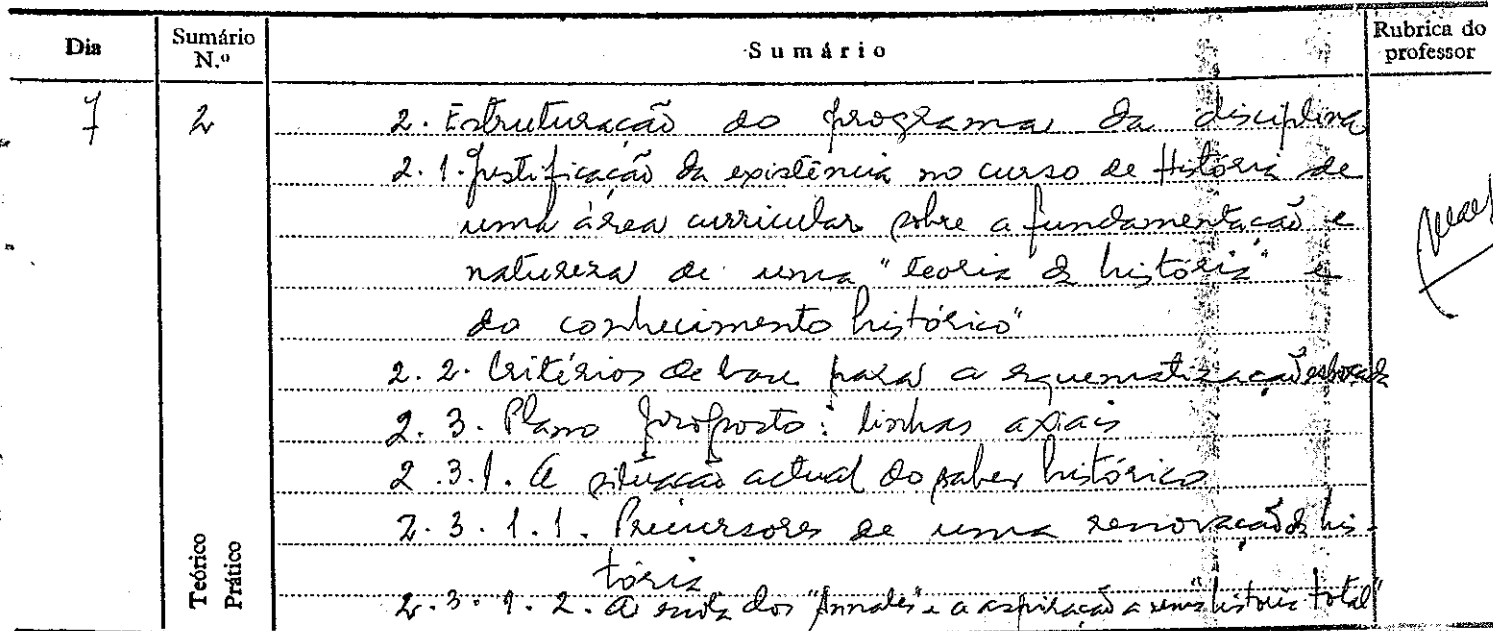 Dia Sumário N.º Sumário Rubrica do professor
7 2 2. Estruturação do programa da disciplina
2.1. Justificação da existência no curso de História de
uma área curricular sobre a fundamentação e
natureza de uma "teoria da história" e
do conhecimento histórico"
2.2. Critérios de base para a esquematização esboçada
2.3. Plano proposto: linhas axiais
2.3.1. A situação actual do saber histórico
2.3.1.1. Precursores de uma renovação da his-
tória
2.3.1.2. A escola dos "Annales" e a aspiração a uma "história total"
Teórico
Prático